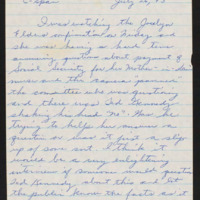 C-Span July 26, 93
I was watching the Joycelyn
Elders confirmation Friday and
she was having a hard time
answering questions about payment of
Social Security for her Mother-in-law's
nurse and the
the committee who was questioning
and there was Ted Kennedy
shaking his head "No". Was he
trying to help her answer a
question or was it just a
up of some sort. I think it
would be a very enlightening
interview if someone would question
Ted Kennedy about this and let
the public know the facts as it